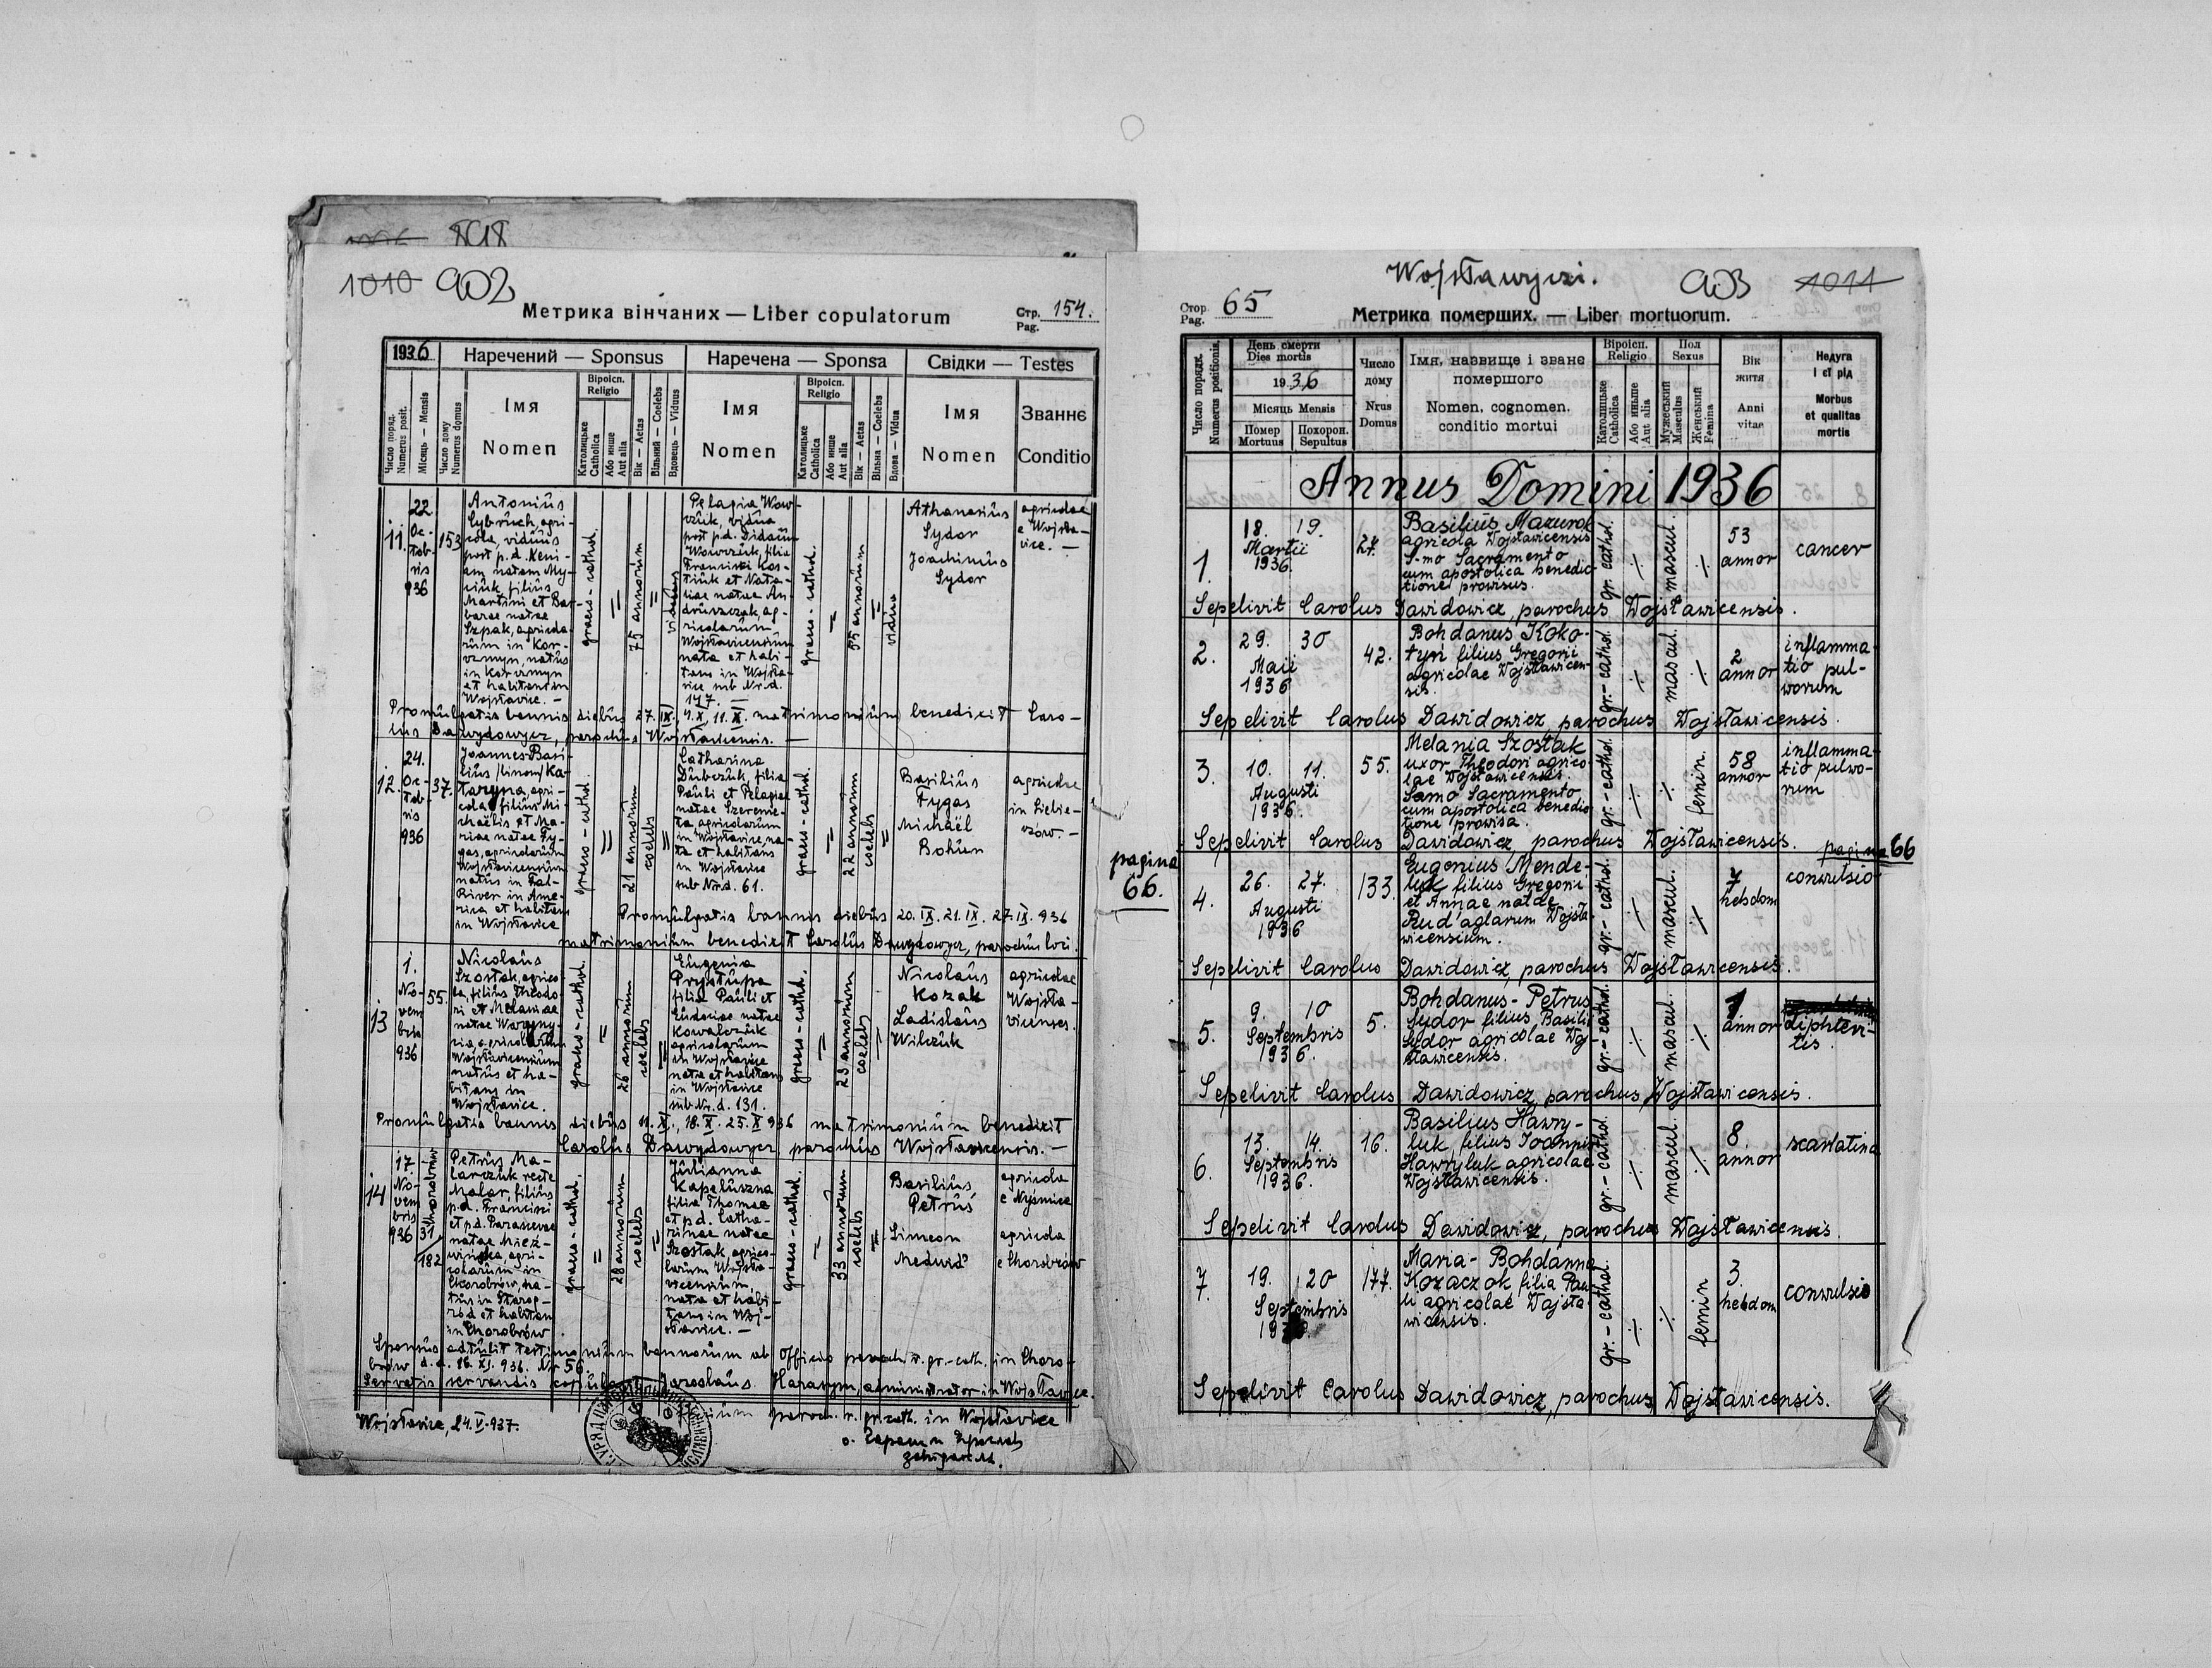 898
1010 902
Метрика вінчаних — Liber copulatorum
Стр. Pag. 154.
1936
Наречений — Sponsus
Наречена — Sponsa
Свідки — Testes
Число поряд. Numerus posit.
Місяць - Mensis
Число дому Numerus domus
Імя
Nomen
Віроісп. Religio
Католицьке Catholica
Або инше Aut alia
Вік — Aetas
Вільний — Coelebs
Вдовець — Viduus
Імя
Nomen
Віроісп. Religio
Католицьке Catholica
Або инше Aut alia
Вік — Aetas
Вільна — Coelebs
Вдова — Vidua
Імя
Nomen
Званнє
Conditio
11.
22
Oc-
tob-
ris
936
153
Antonius
Cybruch, agri-
cola, viduus
post p.d. Xeni-
am natam My-
ciuk, filius
Martini et Bar-
barae natae
Szpak, agricola-
rum in Kor-
czmyn, natus
in Korczmyn
et habitans in
Wojsławice. —
graeco-cathol.
75 annorum
viduus
Pelagia Wow-
czuk, vidua
post p.d. Didacum
Wowczuk, filia
Francisci Kos-
tiuk et Nata-
liae natae An-
druszczak, ag-
ricolarum
Wojsławicensium
nata et habi-
tans in Wojsła-
wice sub Nr. d.
117. —
graeco-cathol.
55 annorum
vidua
Athanasius
Sydor
Joachimus
Sydor
agricolae
e Wojsła-
wice. —
Promulgatis bannis diebus 27.IX, 4.X, 11.X. matrimonium benedixit Caro-
lus Dawydowycz, parochus Wojsławicensis. —
12.
24.
Oc-
tob-
ris
936
37.
Joannes-Basi-
lius /binom/ Ka-
taryna, agri-
cola, filius Mi-
chaëlis et Ma-
riae natae Fy-
gas, agricolarum
Wojsławicensium
natus in Fal-
River in Ame-
rica et habitans
in Wojsławice
graeco-cathol.
21 annorum
coelebs
Catharina
Dubczuk, filia
Pauli et Pelagiae
natae Szereme-
ta agricolarum
in Wojsławice, na-
ta et habitans
in Wojsławice
sub Nr. d. 61.
graeco-cathol.
22 annorum
coelebs
Basilius
Fygas
Michaël
Bohun
agricolae
in Liebie-
czów. —
Promulgatis bannis diebus 20.IX. 21.IX. 27.IX. 936
matrimonium benedixit Carolus Dawydowycz, parochus loci.
13
1.
No-
vem
bris
936
55.
Nicolaus
Szostak, agrico-
la, filius Theodo-
ri et Melaniae
natae
agricolarum
Wojsławicensium
natus et ha-
bitans in
Wojsławice.
graeco-cathol.
26 annorum
coelebs
Eugenia
Prystupa
filia Pauli et
Eudociae natae
Kowalczuk
agricolarum
in Wojsławice
nata et habitans
in Wojsławice
sub Nr. d. 131.
graeco-cathol.
23 annorum
coelebs
Nicolaus
Kozak
Ladislaus
Wilczuk
agricolae
Wojsła-
vicenses.
Promulgatis bannis diebus 11.X., 18.X. 25.X 936 matrimonium benedixit
Carolus Dawydowycz parochus Wojsławicensis. —
14
17.
No-
vem
bris
936
Chorobrów
31/
182
Petrus Ma-
larczuk recte
Malar, filius
p.d. Francisci
et p.d. Parascevae
natae
agri-
colarum in
Chorobrów, na-
tus in Starog-
ród et habitans
in Chorobrów
graeco-cathol.
28 annorum
coelebs
Julianna
Kapeluszna
filia Thomae
et p.d. Catha-
rinae natae
Szostak, agrico-
larum Wojsła-
vicensium,
nata et habi-
tans in Woj-
sławice. —
graeco-cathol.
33 annorum
coelebs
Basilius
Petruś
Simeon
Medwid'
agricola
e Nyśmice
agricola
e Chorobrów
Sponsus adtulit testimonium bannorum ab Officio paroch. r. gr.-cath. in Choro-
brów d.d. 16.XI.936. Nr 56.
Servatis servandis copul Jaroslaus Harasym, administrator in Wojsławice.
Wojsławice, 24.V.937.
paroch. r. gr. cath. in Wojsławice
о. Гарасим Ярослав
завідатель.
Wojsławyci.
903 1011
Стор. Pag. 65
Метрика померших. — Liber mortuorum.
Число порядк. Numerus positionis.
День смерти
Dies mortis
1936
Місяць Mensis
Помер Mortuus
Похорон. Sepultus
Число дому
Nrus Domus
Імя, назвище і званє
помершого
Nomen, cognomen,
conditio mortui
Віроісп. Religio
Католицьке Catholica
Або иньше Aut alia
Пол Sexus
Мужеський Masculus
Женський Femina
Вік
житя
Anni
vitae
Недуга
і єї рід
Morbus
et qualitas
mortis
Annus Domini 1936
1.
18. 19.
Martii
1936.
27.
Basilius Mazurok
agricola Wojsławicensis
S-mo Sacramento
cum apostolica benedic-
tione prowisus.
gr. cathol.
mascul.
53
annor
cancer
Sepelivit Carolus Dawidowicz, parochus Wojsławicensis.
2.
29. 30
Maii
1936
42.
Bohdanus Koko-
tyn filius Gregorii
agricolae Wojsławicen-
sis.
gr.-cathol.
mascul.
2
annor
inflamma-
tio pul-
worum
Sepelivit Carolus Dawidowicz, parochus Wojsławicensis.
3.
10. 11.
Augusti
1936.
55.
Melania Szostak
uxor Theodori agrico-
lae Wojsławicensis.
Ssmo Sacramento
cum apostolica benedic-
tione prowisa.
gr.-cathol.
femin.
58
annor
inflamma-
tio pulwo-
rum
Sepelivit Carolus Dawidowicz, parochus Wojsławicensis.
pagina 66
pagina
66.
4.
26. 27.
Augusti
1936
133
Eugenius Mende-
luk filius Gregorii
et Annae natae
Rud' aglarum Wojsła-
wicensium.
gr.-cathol.
mascul.
7
hebdom
conwulsio
Sepelivit Carolus Dawidowicz, parochus Wojsławicensis.
5.
9. 10
Septembris
1936.
5.
Bohdanus-Petrus
Sydor filius Basilii
Sydor agricolae Woj-
sławicensis.
gr.-cathol.
mascul.
1
annor
diphteri-
tis.
Sepelivit Carolus Dawidowicz, parochus Wojsławicensis.
6.
13. 14.
Septembris
1936.
16.
Basilius Hawry-
luk, filius Joannis
Hawryluk agricolae
Wojsławicensis.
gr.-cathol.
mascul.
8.
annor
scarlatina
Sepelivit Carolus Dawidowicz, parochus Wojsławicensis.
7.
19. 20
Septembris
177.
Maria-Bohdanna
Kozaczok filia Pau-
li agricolae Wojsła-
wicensis.
gr.-cathol.
femin
3.
hebdom
conwulsio
Sepelivit Carolus Dawidowicz, parochus Wojsławicensis.